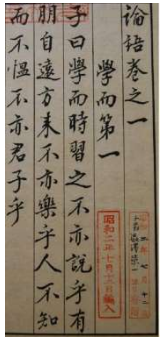 論語卷之一
學而第一
子曰學而時習之不亦說乎有
朋自遠方来不亦樂乎人不知
而不慍不亦君子乎
昭和二年七月十六日編入